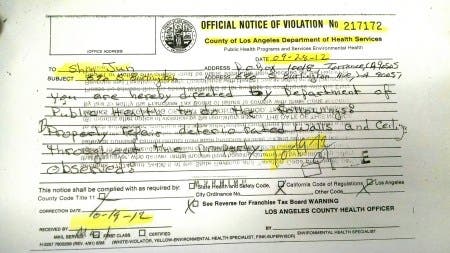 OFFICIAL NOTICE OF VIOLATION No 217172
County of Los Angeles Department of Health Services
Public Health Programs and Services Environmental Health
(OFFICE ADDRESS)
DATE 09-28-12
TO Jun ADDRESS Torrance, CA 90505
SUBJECT ADDRESS LA 90057
you are hereby directed by Department of
Public Health to do the following:
Property repair deteriorated Walls and Ceiling
throughout the property. 10/19/12
observed:
This notice shall be complied with as required by: State Health and Safety Code, California Code of Regulations Los Angeles
County Code Title 11 City Ordinance No. Other Code
CORRECTION DATE 10-19-12
See Reverse for Franchise Tax Board WARNING
LOS ANGELES COUNTY HEALTH OFFICER
RECEIVED BY Mail
MAIL SERVICE: FIRST CLASS CERTIFIED
BY: ENVIRONMENTAL HEALTH SPECIALIST
(WHITE-VIOLATOR, YELLOW-ENVIRONMENTAL HEALTH SPECIALIST, PINK-SUPERVISOR)